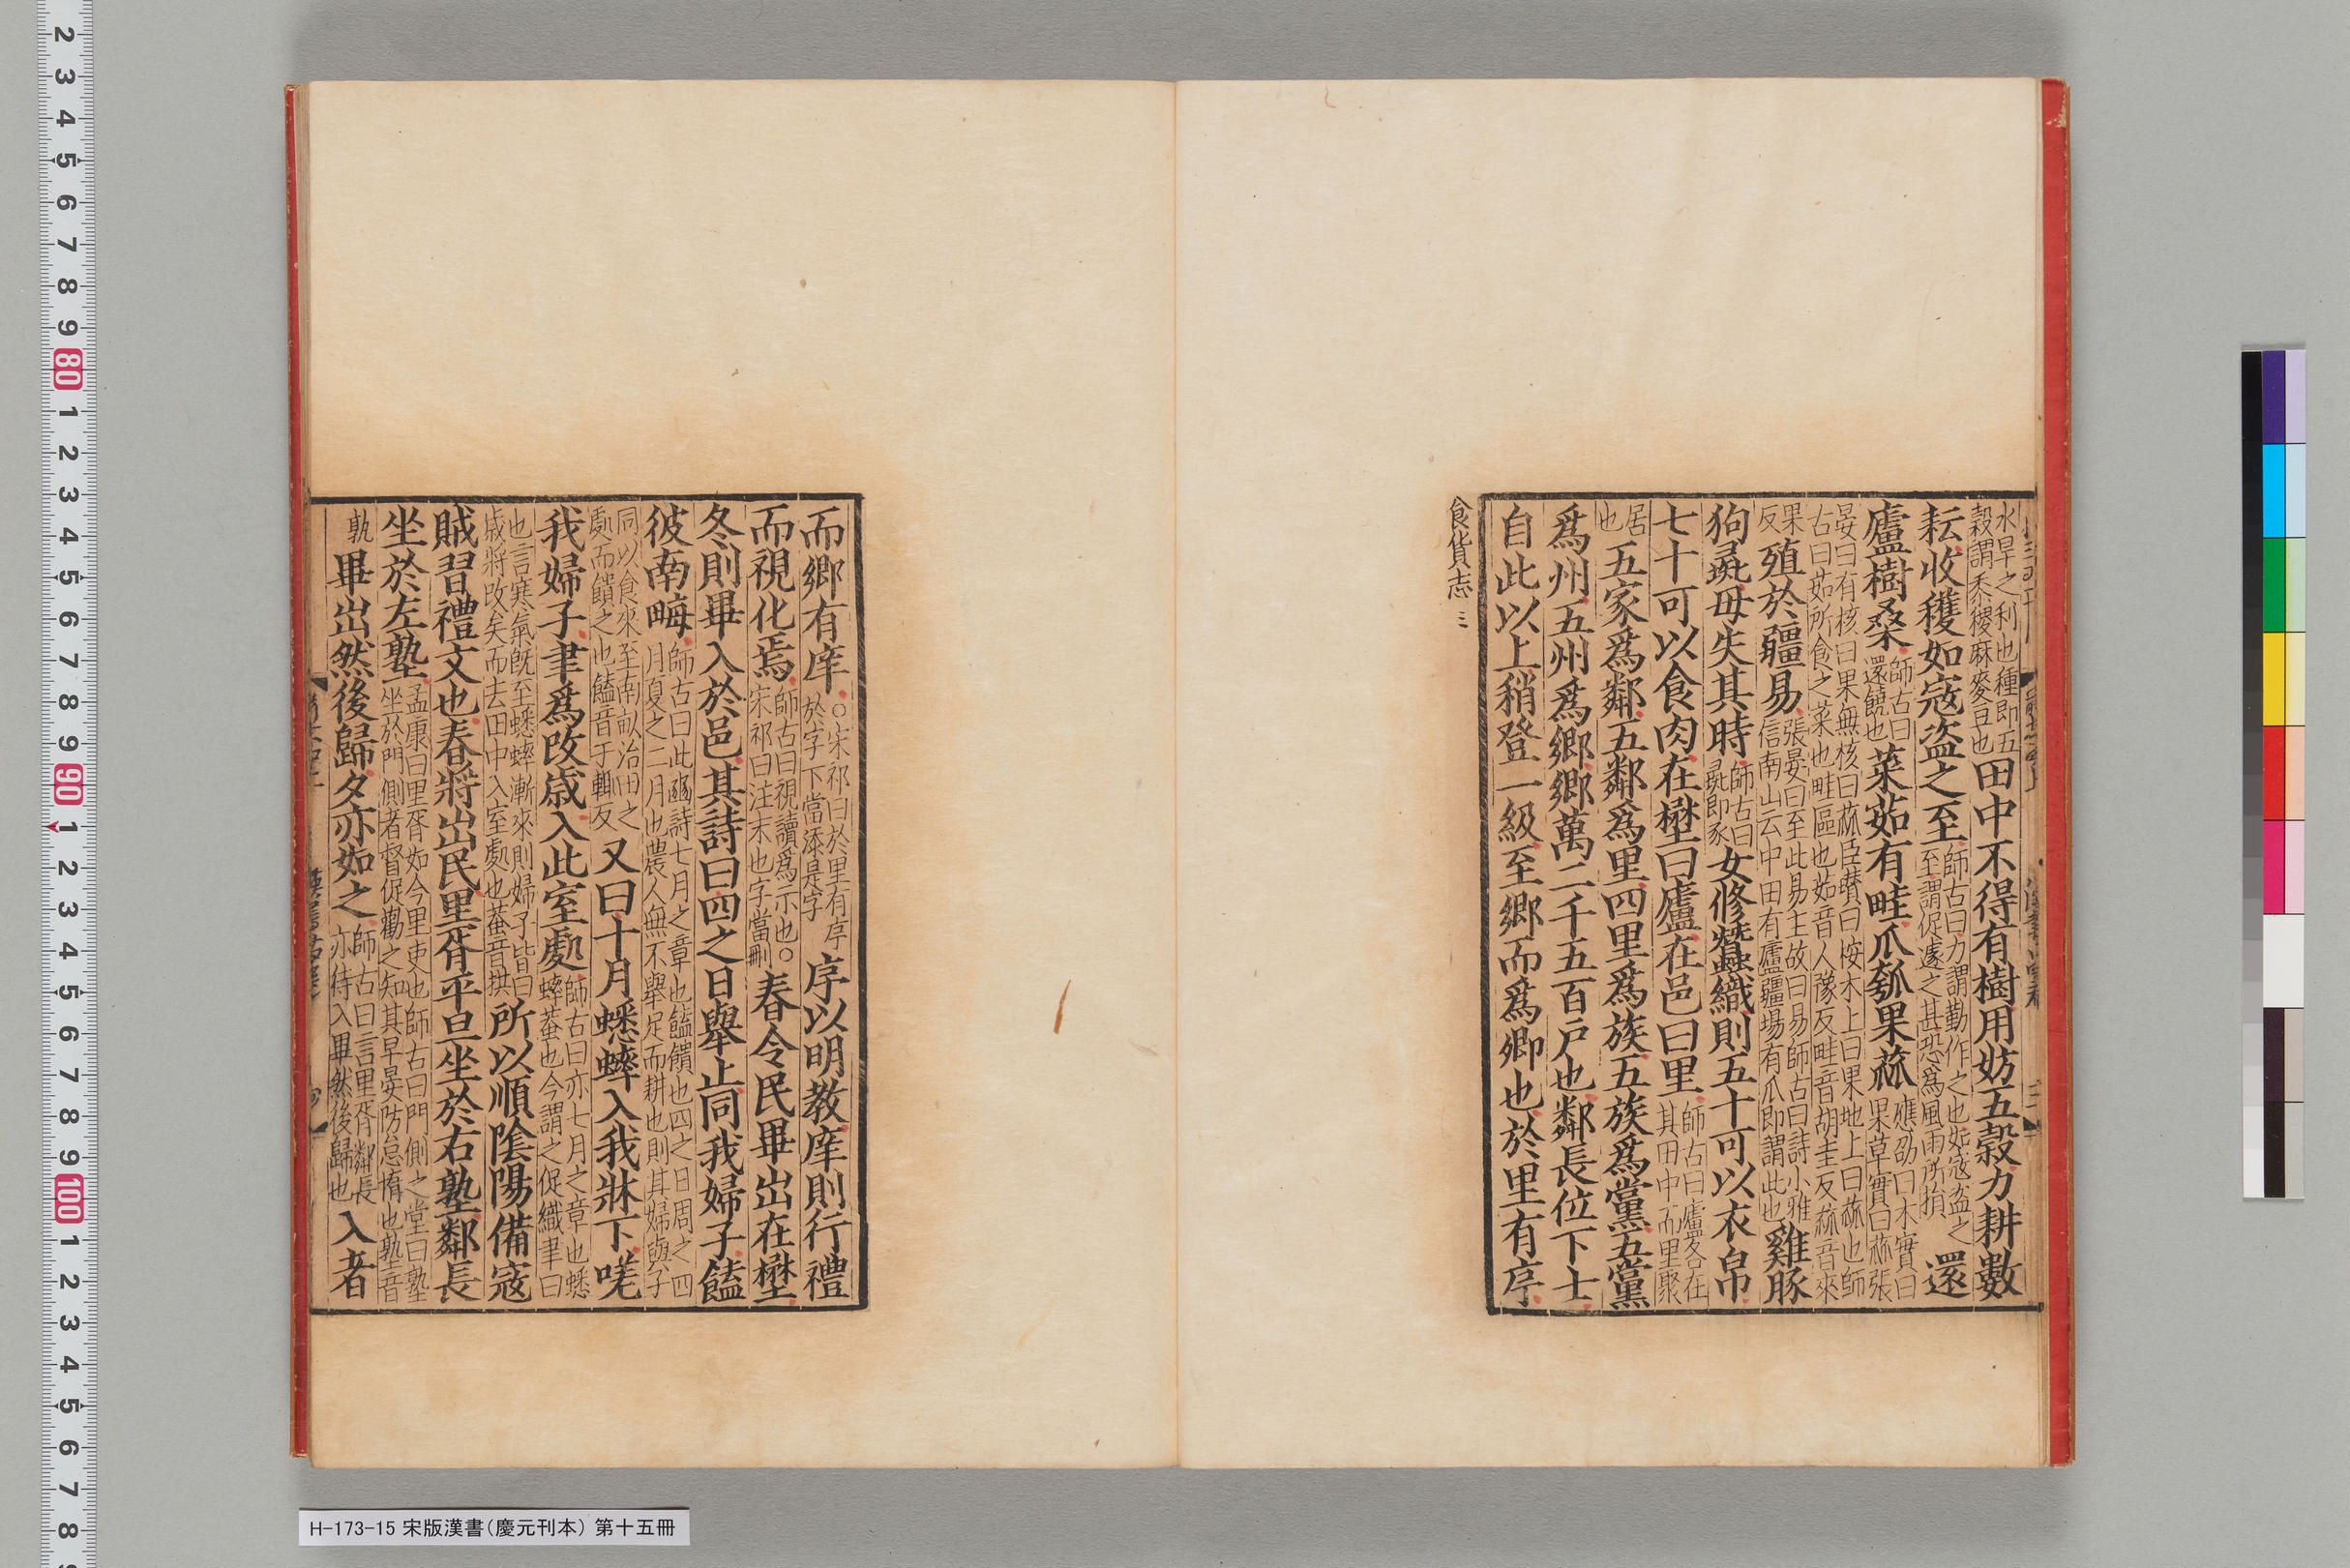 水旱之利也種即五穀謂黍稷麻麥豆也田中不得有樹用妨五穀力耕數
耘收穫如寇盜之至師古曰力謂勤作之也如寇盜之至謂促遽之甚恐爲風雨所損還
廬樹桑師古曰還繞也菜茹有畦瓜瓠果蓏應劭曰木實曰果草實曰蓏張
晏曰有核曰果無核曰蓏臣瓚曰桉木上曰果地上曰蓏也師古曰茹所食之菜也畦區也茹音人豫反畦音胡圭反蓏音來
果反殖於疆易張晏曰至此易主故曰易師古曰詩小雅信南山云中田有廬疆場有瓜即謂此也雞豚
狗彘毋失其時師古曰彘即豕女修蠶織則五十可以衣帛
七十可以食肉在壄曰廬在邑曰里師古曰廬各在其田中而里聚
居也五家爲鄰五鄰爲里四里爲族五族爲黨五黨
爲州五州爲鄉鄉萬二千五百戶也鄰長位下士
自此以上稍登一級至鄉而爲卿也於里有序
食貨志 三
而鄉有庠○宋祁曰於里有序於字下當添是字序以明教庠則行禮
而視化焉師古曰視讀爲示也○宋祁曰注末也字當刪春令民畢出在壄
冬則畢入於邑其詩曰四之日舉止同我婦子饁
彼南畮師古曰此豳詩七月之章也饁饋也四之日周之四月夏之二月也農人無不舉足而耕也則其婦與子
同以食來至南畝治田之處而饋之也饁音于輒反又曰十月蟋蟀入我牀下嗟
我婦子聿爲改歲入此室處師古曰亦七月之章也蟋蟀蛬也今謂之促織聿曰
也言寒氣既至蟋蟀漸來則婦子皆曰歲將改矣而去田中入室處也蛬音拱所以順陰陽備寇
賊習禮文也春將出民里胥平旦坐於右塾鄰長
坐於左塾孟康曰里胥如今里吏也師古曰門側之堂曰塾坐於門側者督促勸之知其早晏防怠惰也塾音
孰畢出然後歸夕亦如之師古曰言里胥鄰長亦待入畢然後歸也入者
H-173-15 宋版漢書(慶元刊本) 第十五冊